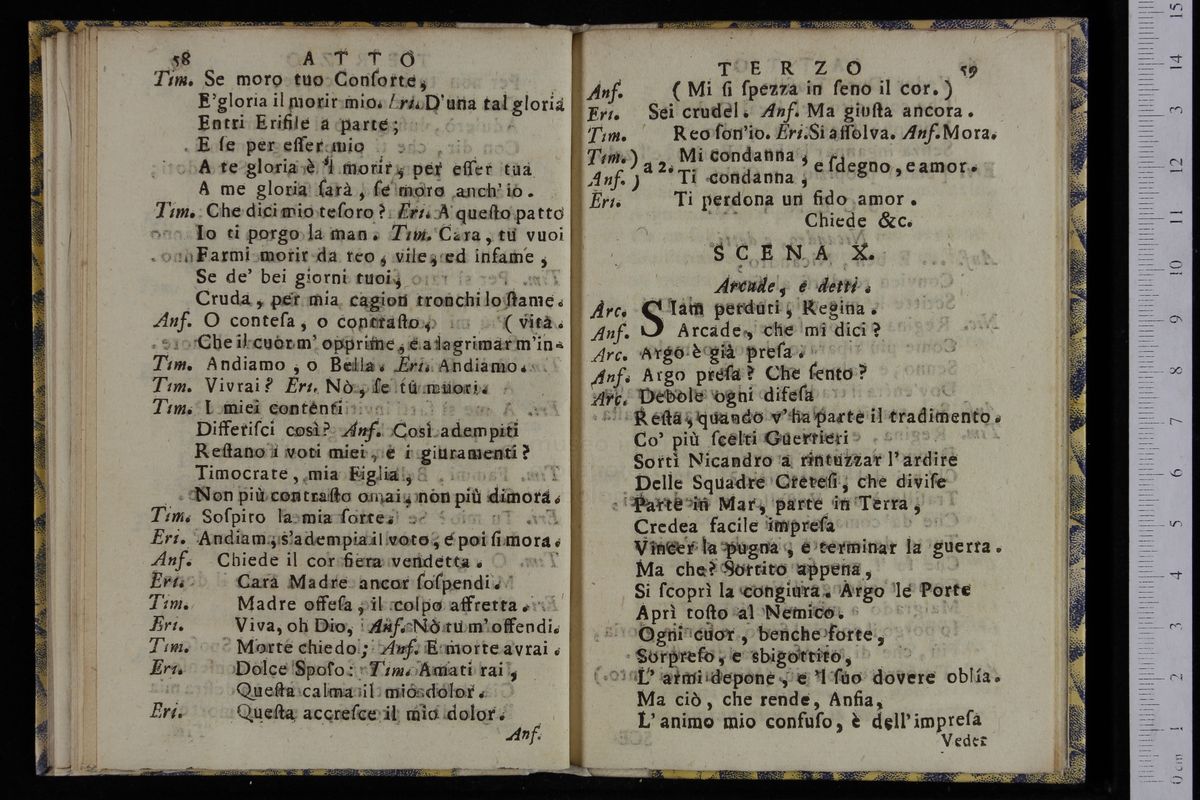 58 ATTO
Tim. Se moro tuo Conſorte,
E'gloria il morir mio. Eri. D'una tal gloria
Entri Erifile a parte;
E ſe per eſſer mio
A te gloria è 'l morir, per eſſer tua
A me gloria ſarà, ſe moro anch'io.
Tim. Che dici mio teſoro? Eri. A queſto patto
Io ti porgo la man. Tim. Cara, tu vuoi
Farmi morir da reo, vile, ed infame,
Se de' bei giorni tuoi,
Cruda, per mia cagion tronchi lo ſtame.
Anf. O conteſa, o contraſto, (vita.
Che il cuor m'opprime, e a lagrimar m'in-
Tim. Andiamo, o Bella. Eri. Andiamo.
Tim. Vivrai? Eri. Nò, ſe tu muori.
Tim. I miei contenti
Differiſci così? Anf. Così adempiti
Reſtano i voti miei, e i giuramenti?
Timocrate, mia Figlia,
Non più contraſto omai, non più dimora.
Tim. Soſpiro la mia ſorte.
Eri. Andiam, s'adempia il voto, e poi ſi mora.
Anf. Chiede il cor fiera vendetta.
Eri. Cara Madre ancor ſoſpendi.
Tim. Madre offeſa, il colpo affretta.
Eri. Viva, oh Dio, Anf. Nò tu m'offendi.
Tim. Morte chiedo; Anf. E morte avrai.
Eri. Dolce Spoſo: Tim. Amati rai,
Queſta calma il mio dolor.
Eri. Queſta accreſce il mio dolor.
Anf.
TERZO 59
Anf. (Mi ſi ſpezza in ſeno il cor.)
Eri. Sei crudel. Anf. Ma giuſta ancora.
Tim. Reo ſon'io. Eri. Si aſſolva. Anf. Mora.
Tim.) a 2. Mi condanna, e ſdegno, e amor.
Anf.) Ti condanna,
Eri. Ti perdona un fido amor.
Chiede &c.
SCENA X.
Arcade, e detti.
Arc. SIam perduti, Regina.
Anf. Arcade, che mi dici?
Arc. Argo è già preſa.
Anf. Argo preſa? Che ſento?
Arc. Debole ogni difeſa
Reſta, quando v'ha parte il tradimento.
Co' più ſcelti Guerrieri
Sortì Nicandro a rintuzzar l'ardire
Delle Squadre Creteſi, che diviſe
Parte in Mar, parte in Terra,
Credea facile impreſa
Vincer la pugna, e terminar la guerra.
Ma che? Sortito appena,
Si ſcoprì la congiura. Argo le Porte
Aprì toſto al Nemico.
Ogni cuor, benche forte,
Sorpreſo, e sbigottito,
L'armi depone, e 'l ſuo dovere oblía.
Ma ciò, che rende, Anfia,
L'animo mio confuſo, è dell'impreſa
Veder